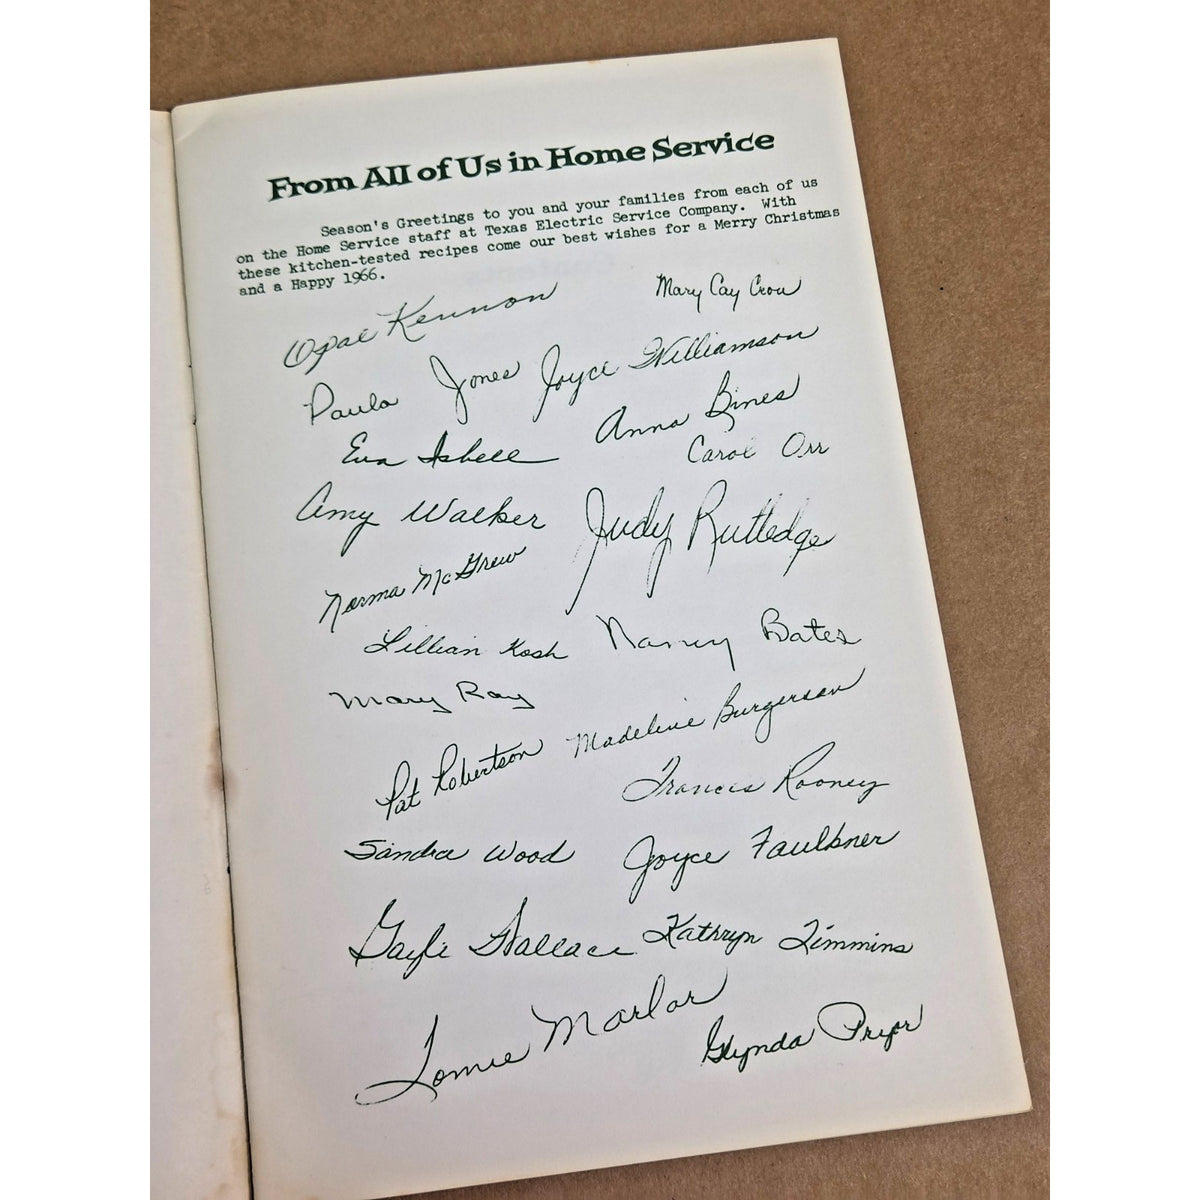 From All of Us in Home Service
Season's Greetings to you and your families from each of us
on the Home Service staff at Texas Electric Service Company. With
these kitchen-tested recipes come our best wishes for a Merry Christmas
and a Happy 1966.
Opal Kennon
Mary Cay Crow
Paula Jones
Joyce Williamson
Eva Isbell
Anna Bines
Carol Orr
Amy Walker
Judy Rutledge
Norma McGrew
Lillian Kosh
Nancy Bates
Mary Ray
Pat Robertson
Madeline Burgerson
Frances Rooney
Sandra Wood
Joyce Faulkner
Gayle Wallace
Kathryn Timmins
Marlar
Glynda Pryor